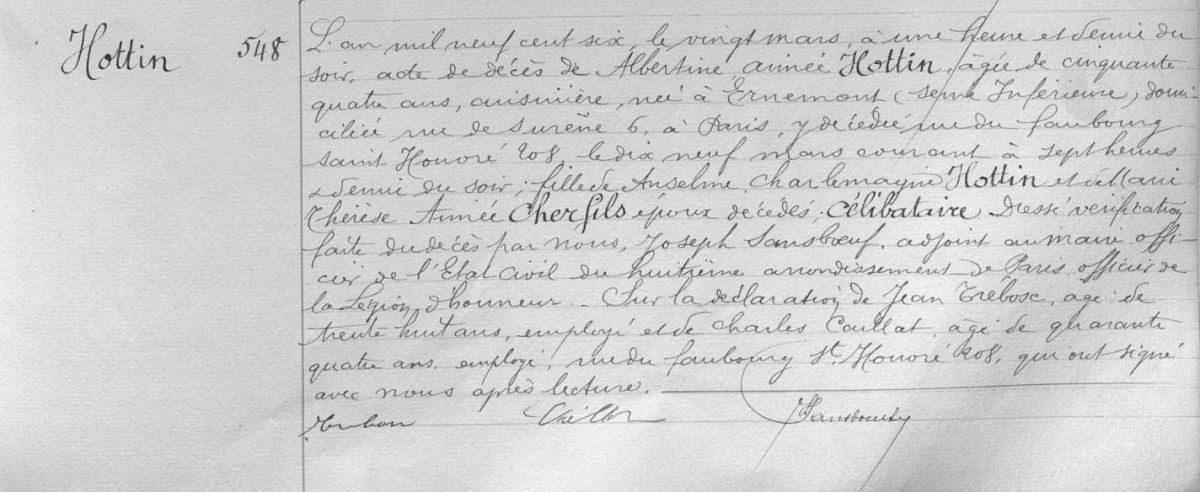 Hottin 548
L'an mil neuf cent six, le vingt mars, à une heure et demie du
soir, acte de décès de Albertine, aimée Hottin, agée de cinquante
quatre ans, cuisinière, née à Ernemont (Seine Inférieure) domi-
ciliée rue de Surène 6, à Paris, y décédée, rue du faubourg
Saint Honoré 208, le dix neuf mars courant à sept heures
& demie du soir; fille de Anselme, Charlemagne Hottin et de Marie
Thérèse Aimée Cherfils époux décédés; Célibataire. Dressé vérification
faite du décès par nous, Joseph Sansboeuf, adjoint au maire, offi-
cier de l'Etat Civil du huitième arrondissement de Paris, officier de
la Légion d'honneur. _ Sur la déclaration de Jean Trébosc, agé de
trente huit ans, employé et de Charles Caillat, âgé de quarante
quatre ans, employé, rue du faubourg St. Honoré 208, qui ont signé
avec nous après lecture.
Sansboeuf